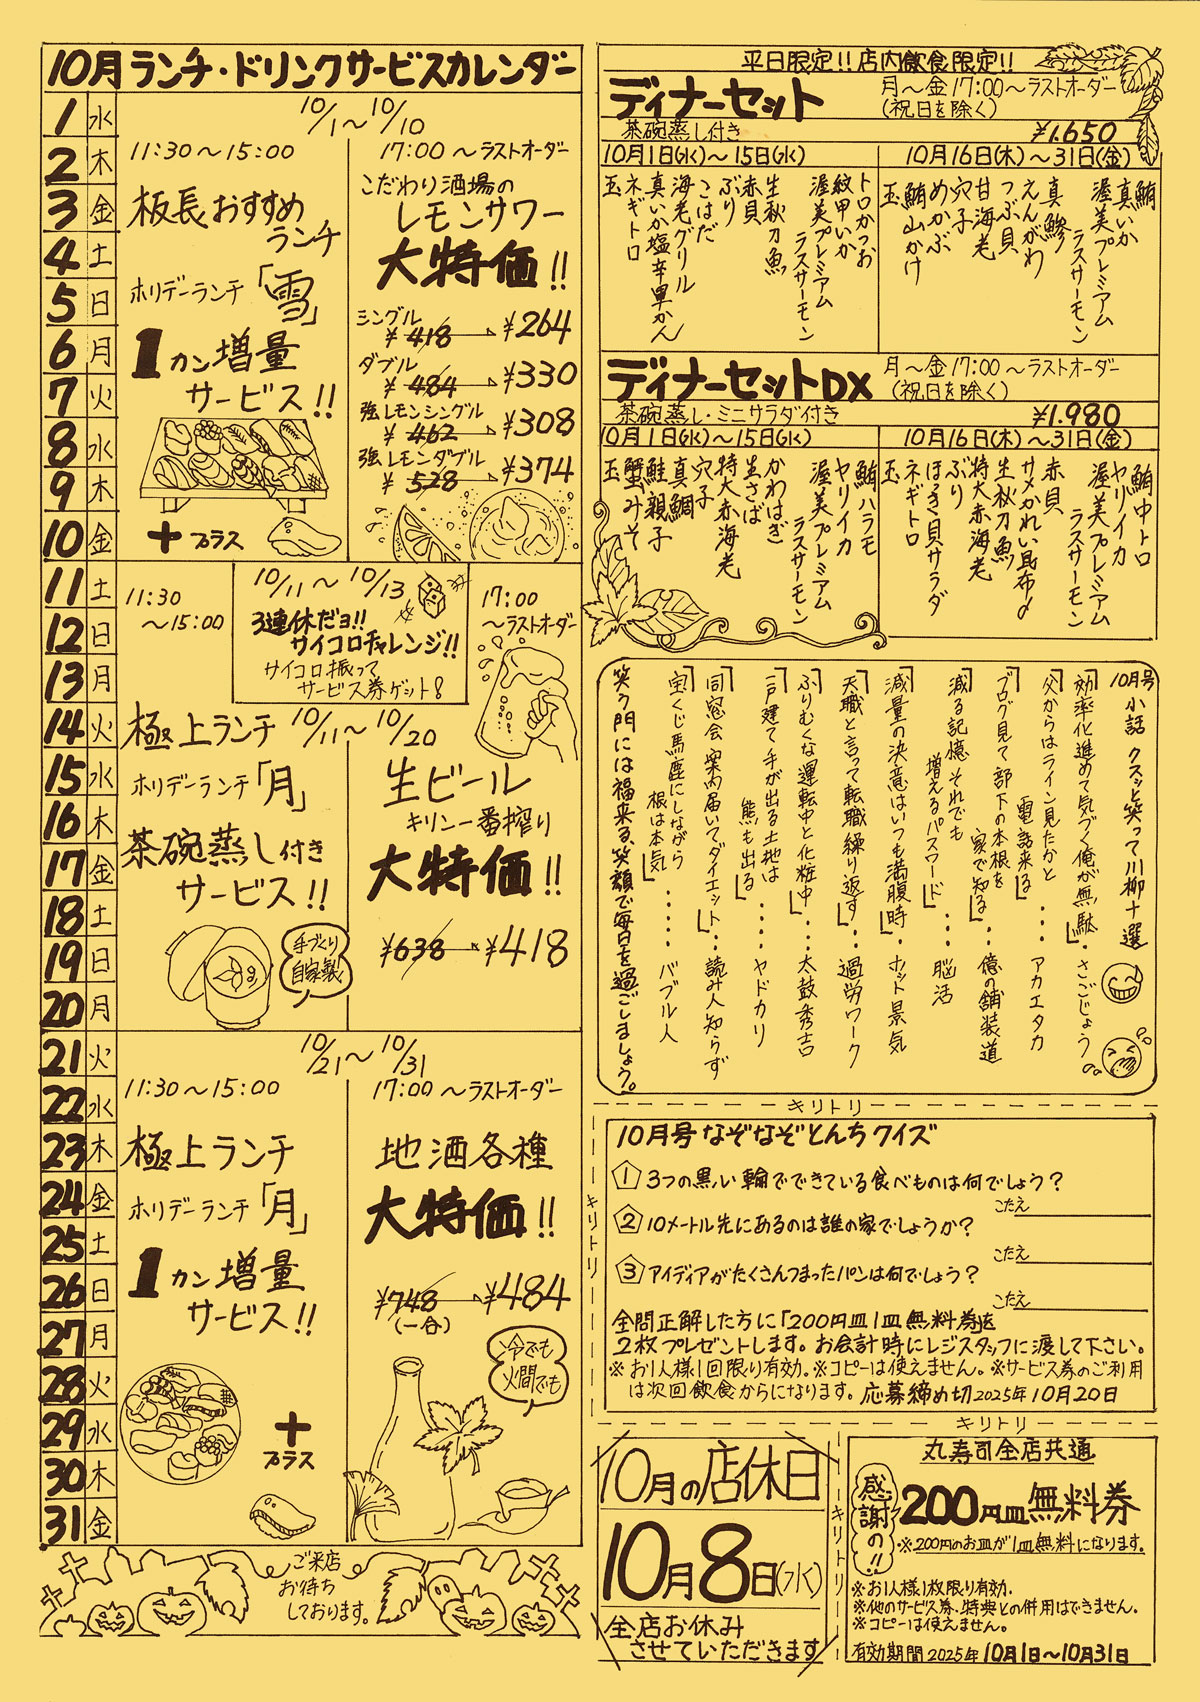 10月ランチ・ドリンクサービスカレンダー
1 水
2 木
3 金
4 土
5 日
6 月
7 火
8 水
9 木
10 金
11 土
12 日
13 月
14 火
15 水
16 木
17 金
18 土
19 日
20 月
21 火
22 水
23 木
24 金
25 土
26 日
27 月
28 火
29 水
30 木
31 金
10/1〜10/10
11:30〜15:00
板長おすすめ
ランチ
ホリデーランチ「雪」
1カン増量
サービス!!
＋プラス
17:00〜ラストオーダー
こだわり酒場の
レモンサワー
大特価!!
シングル
¥418→¥264
ダブル
¥484→¥330
強レモンシングル
¥462→¥308
強レモンダブル
¥528→¥374
11:30
〜15:00
10/11〜10/13
3連休だョ!!
サイコロチャレンジ!!
サイコロ振って
サービス券ゲット!
17:00
〜ラストオーダー
10/11〜10/20
極上ランチ
ホリデーランチ「月」
茶碗蒸し付き
サービス!!
手づくり
自家製
生ビール
キリン一番搾り
大特価!!
¥638→¥418
10/21〜10/31
11:30〜15:00
極上ランチ
ホリデーランチ「月」
1カン増量
サービス!!
＋
プラス
17:00〜ラストオーダー
地酒各種
大特価!!
¥748→¥484
(一合)
冷でも
火間でも
ご来店
お待ち
しております。
平日限定!!店内飲食限定!!
ディナーセット
月〜金17:00〜ラストオーダー
(祝日を除く)
茶碗蒸し付き
¥1.650
10月1日(水)〜15日(水)
トロかつお
紋甲いか
渥美プレミアム
ラスサーモン
生秋刀魚
赤貝
ぶり
こはだ
海老グリル
真いか塩辛軍かん
ネギトロ
玉
10月16日(木)〜31日(金)
鮪
真いか
渥美プレミアム
ラスサーモン
真鯵
えんがわ
つぶ貝
甘海老
穴子
めかぶ
鮪山かけ
玉
ディナーセットDX
月〜金17:00〜ラストオーダー
(祝日を除く)
茶碗蒸し・ミニサラダ付き
¥1.980
10月1日(水)〜15日(水)
鮪ハラモ
ヤリイカ
渥美プレミアム
ラスサーモン
かわはぎ
生さば
特大赤海老
穴子
真鯛
鮭親子
蟹みそ
玉
10月16日(木)〜31日(金)
鮪中トロ
ヤリイカ
渥美プレミアム
ラスサーモン
赤貝
サメかれい昆布〆
生秋刀魚
特大赤海老
ぶり
ほっき貝サラダ
ネギトロ
玉
10月号 小話 クスッと笑って川柳十選
「効率化進めて気づく俺が無駄」・さごじょう
「父からはライン見たかと
電話来る」・・・アカエタカ
「ブログ見て部下の本根を
家で知る」・・億の舗装道
「減る記憶それでも
増えるパスワード」・・・脳活
「減量の決意はいつも満腹時」・ホット景気
「天職と言って転職繰り返す」・・・過労ワーク
「ぶりむくな運転中と化粧中」・・太鼓秀吉
「一戸建て手が出る土地は
熊も出る」・・・・ヤドカリ
「同窓会案内届いてダイエット」・・読み人知らず
「宝くじ馬鹿にしながら
根は本気」・・・・・バブル人
笑う門には福来る、笑顔で毎日を過ごしましょう。
キリトリ
キリトリ
10月号なぞなぞとんちクイズ
① 3つの黒い輪でできている食べものは何でしょう？
こたえ
② 10メートル先にあるのは誰の家でしょうか？
こたえ
③ アイディアがたくさんつまったパンは何でしょう？
こたえ
全問正解した方に「200円皿1皿無料券」を
2枚プレゼントします。お会計時にレジスタッフに渡して下さい。
※お1人様1回限り有効。※コピーは使えません。※サービス券のご利用
は次回飲食からになります。応募締め切2025年10月20日
キリトリ
キリトリ
10月の店休日
10月8日(水)
全店お休み
させていただきます
丸寿司全店共通
感謝の!!
200円皿無料券
※200円のお皿が1皿無料になります。
※お1人様1枚限り有効.
※他のサービス券・特典との併用はできません.
※コピーは使えません。
有効期間2025年10月1日〜10月31日